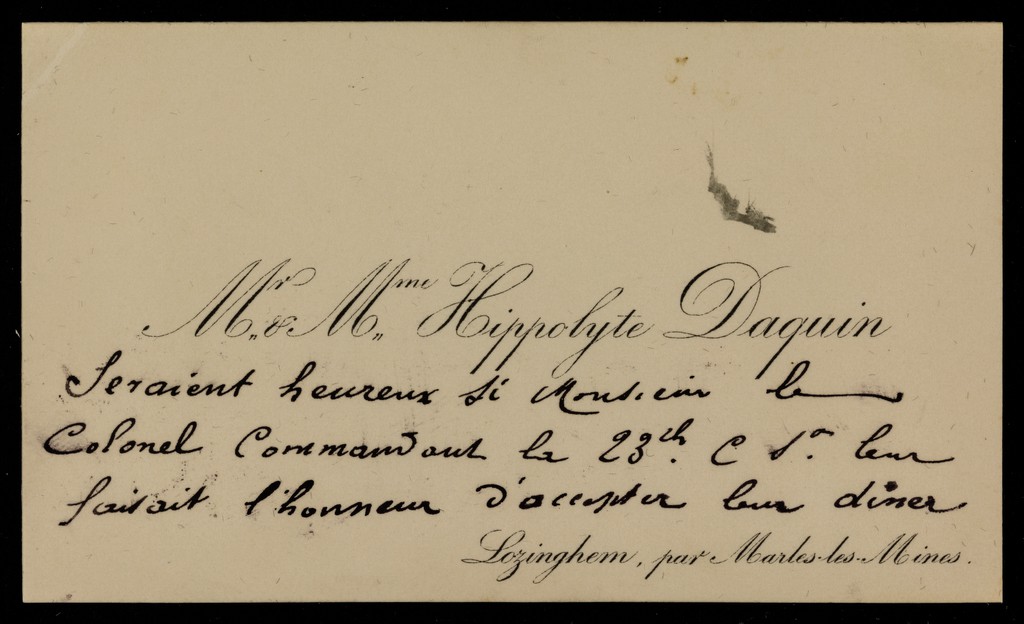 Mr. & Mme. Hippolyte Daquin
Seraient heureux si Monsieur le
Colonel Commandant la 23th. C Sn. leur
faisait l'honneur d'accepter leur dîner
Lozinghem, par Marles-les-Mines.